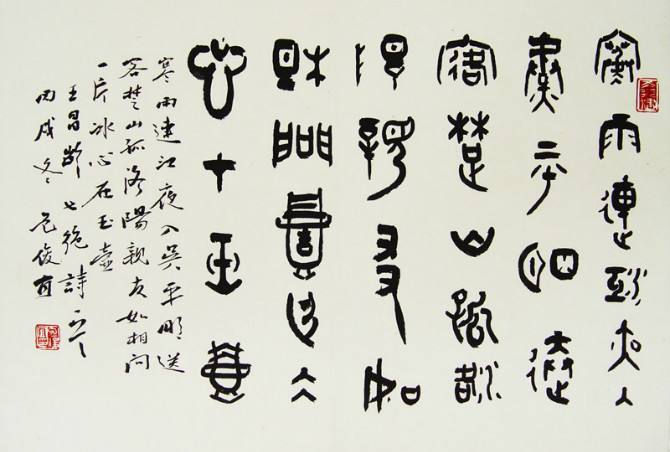 寒雨連江夜入
吳平明送
客楚山孤洛
陽親友如
相問壹片冰
心在玉壺
寒雨連江夜入吳平明送
客楚山孤洛陽親友如相問
一片冰心在玉壺
王昌齡七絕詩一
丙戌冬